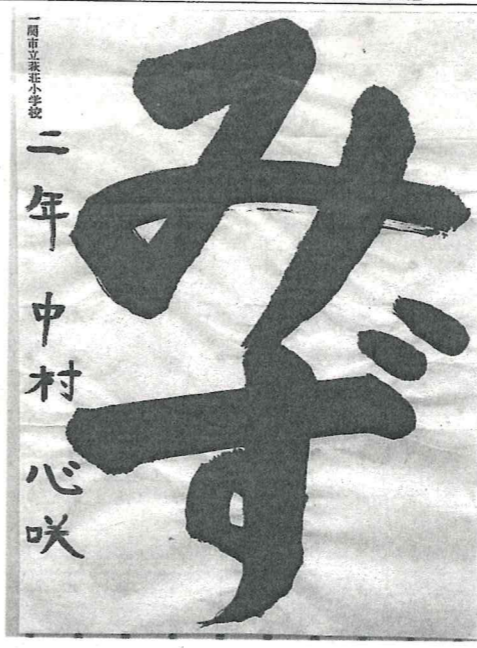 みず
一関市立萩荘小学校
二年 中村心咲